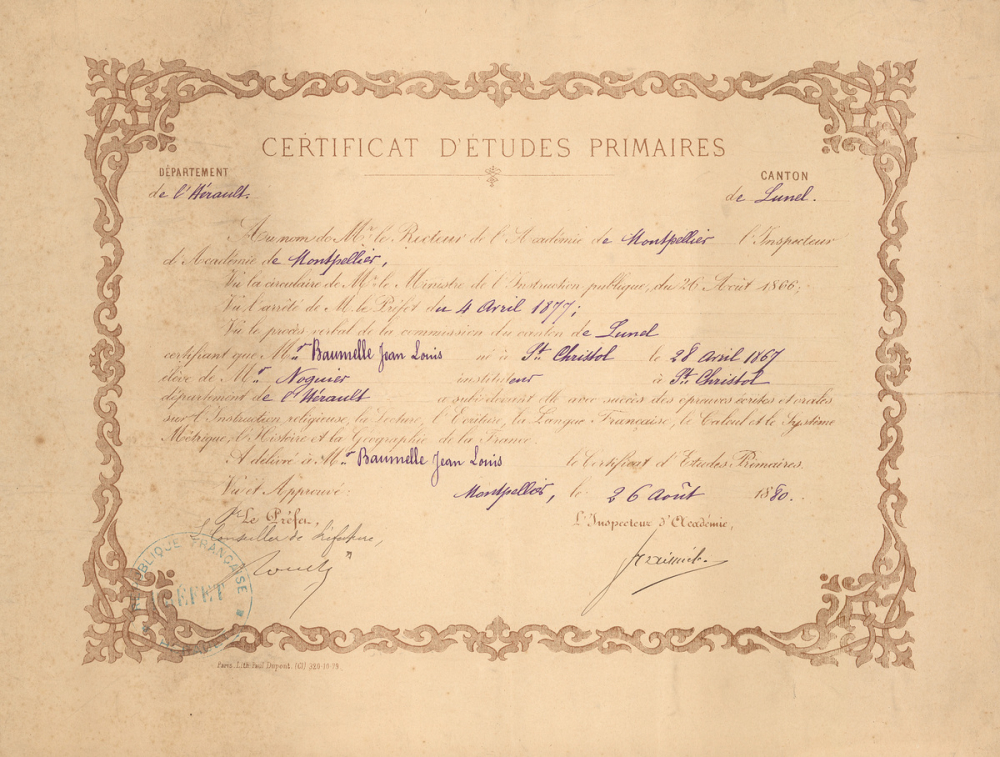 CERTIFICAT D'ÉTUDES PRIMAIRES
DÉPARTEMENT
de l'Hérault.
CANTON
de Lunel.
Au nom de Mr. le Recteur de l'Académie de Montpellier l'Inspecteur
d'Académie de Montpellier,
Vu la circulaire de Mr. le Ministre de l'Instruction publique, du 26 Août 1866;
Vu l'arrêté de M. le Préfet du 4 Avril 1877;
Vu le procès verbal de la commission du canton de Lunel
certifiant que Mr. Baumelle Jean Louis né à St. Christol le 28 avril 1867
élève de Mr. Noguier instituteur à St. Christol
département de l'Hérault a subi devant elle avec succès des épreuves écrites et orales
sur l'Instruction religieuse, la Lecture, l'Ecriture, la Langue Française, le Calcul et le Système
Métrique, l'Histoire et la Géographie de la France.
A délivré à Mr. Baumelle Jean Louis le Certificat d'Etudes Primaires.
Vu et Approuvé: Montpellier, le 26 août 1880.
Pr Le Préfet,
Conseiller de Préfecture,
L'Inspecteur d'Académie,
RÉPUBLIQUE FRANÇAISE
Paris. Lith. Paul Dupont.